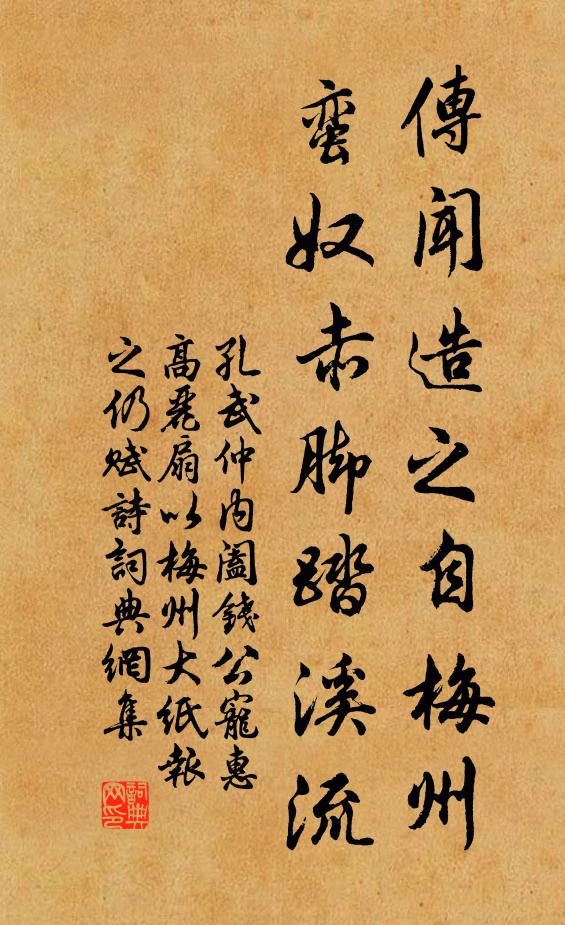 傳聞造之自梅州
蛮奴赤脚踏溪流
孔武仲内阁錢公寵惠
高麗扇以梅州大紙報
之仍赋詩詞典網集
詞典网印